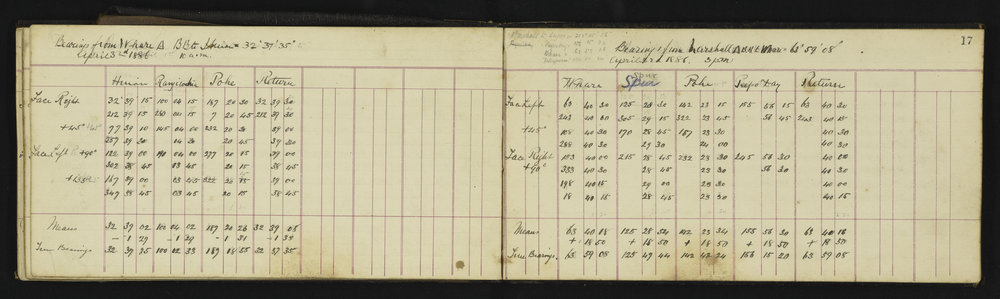 Bearings from Whare A BB to Herion = 32° 37' 35"
April 3rd 1886 10 a.m.
Herion Rangitoto Poke Return
Face Right 32 39 15 100 04 15 187 20 30 32 39 30
212 39 15 280 04 15 7 20 45 212 39 30
+45° 77 39 10 145 04 00 232 20 30 39 00
257 39 30 04 30 20 45 39 30
Face Left +90° 122 39 00 190 04 00 277 20 15 39 00
302 38 45 03 45 20 15 38 45
167 39 00 03 45 39 00
347 38 45 03 45 20 15 38 45
Means 32 39 02 100 04 02 187 20 26 32 39 08
- 1 29 - 1 29 - 1 31 - 1 33
True Bearings 32 37 35 100 02 33 187 18 55 32 37 35
17
Bearings from Marshall to Whare = 63° 59' 08"
April 3rd 1886. 3 pm
Whare Spur Poke Return
Spur
Face Left 63 40 30 125 28 30 142 23 15 155 56 15 63 40 30
243 40 00 305 29 15 322 23 45 56 45 243 40 15
+45° 108 40 30 170 28 45 187 23 30 40 30
288 40 30 29 30 24 00 40 30
Face Right 153 40 00 215 28 45 232 23 30 245 56 30 40 00
+90° 333 40 30 28 45 23 30 56 30 40 30
198 40 15 29 00 23 30 40 00
18 40 15 28 45 23 30 40 00
Means 63 40 18 125 28 54 142 23 34 155 56 30 63 40 18
+ 18 50 + 18 50 + 18 50 + 18 50 + 18 50
True Bearings. 63 59 08 125 47 44 142 42 24 156 15 20 63 59 08